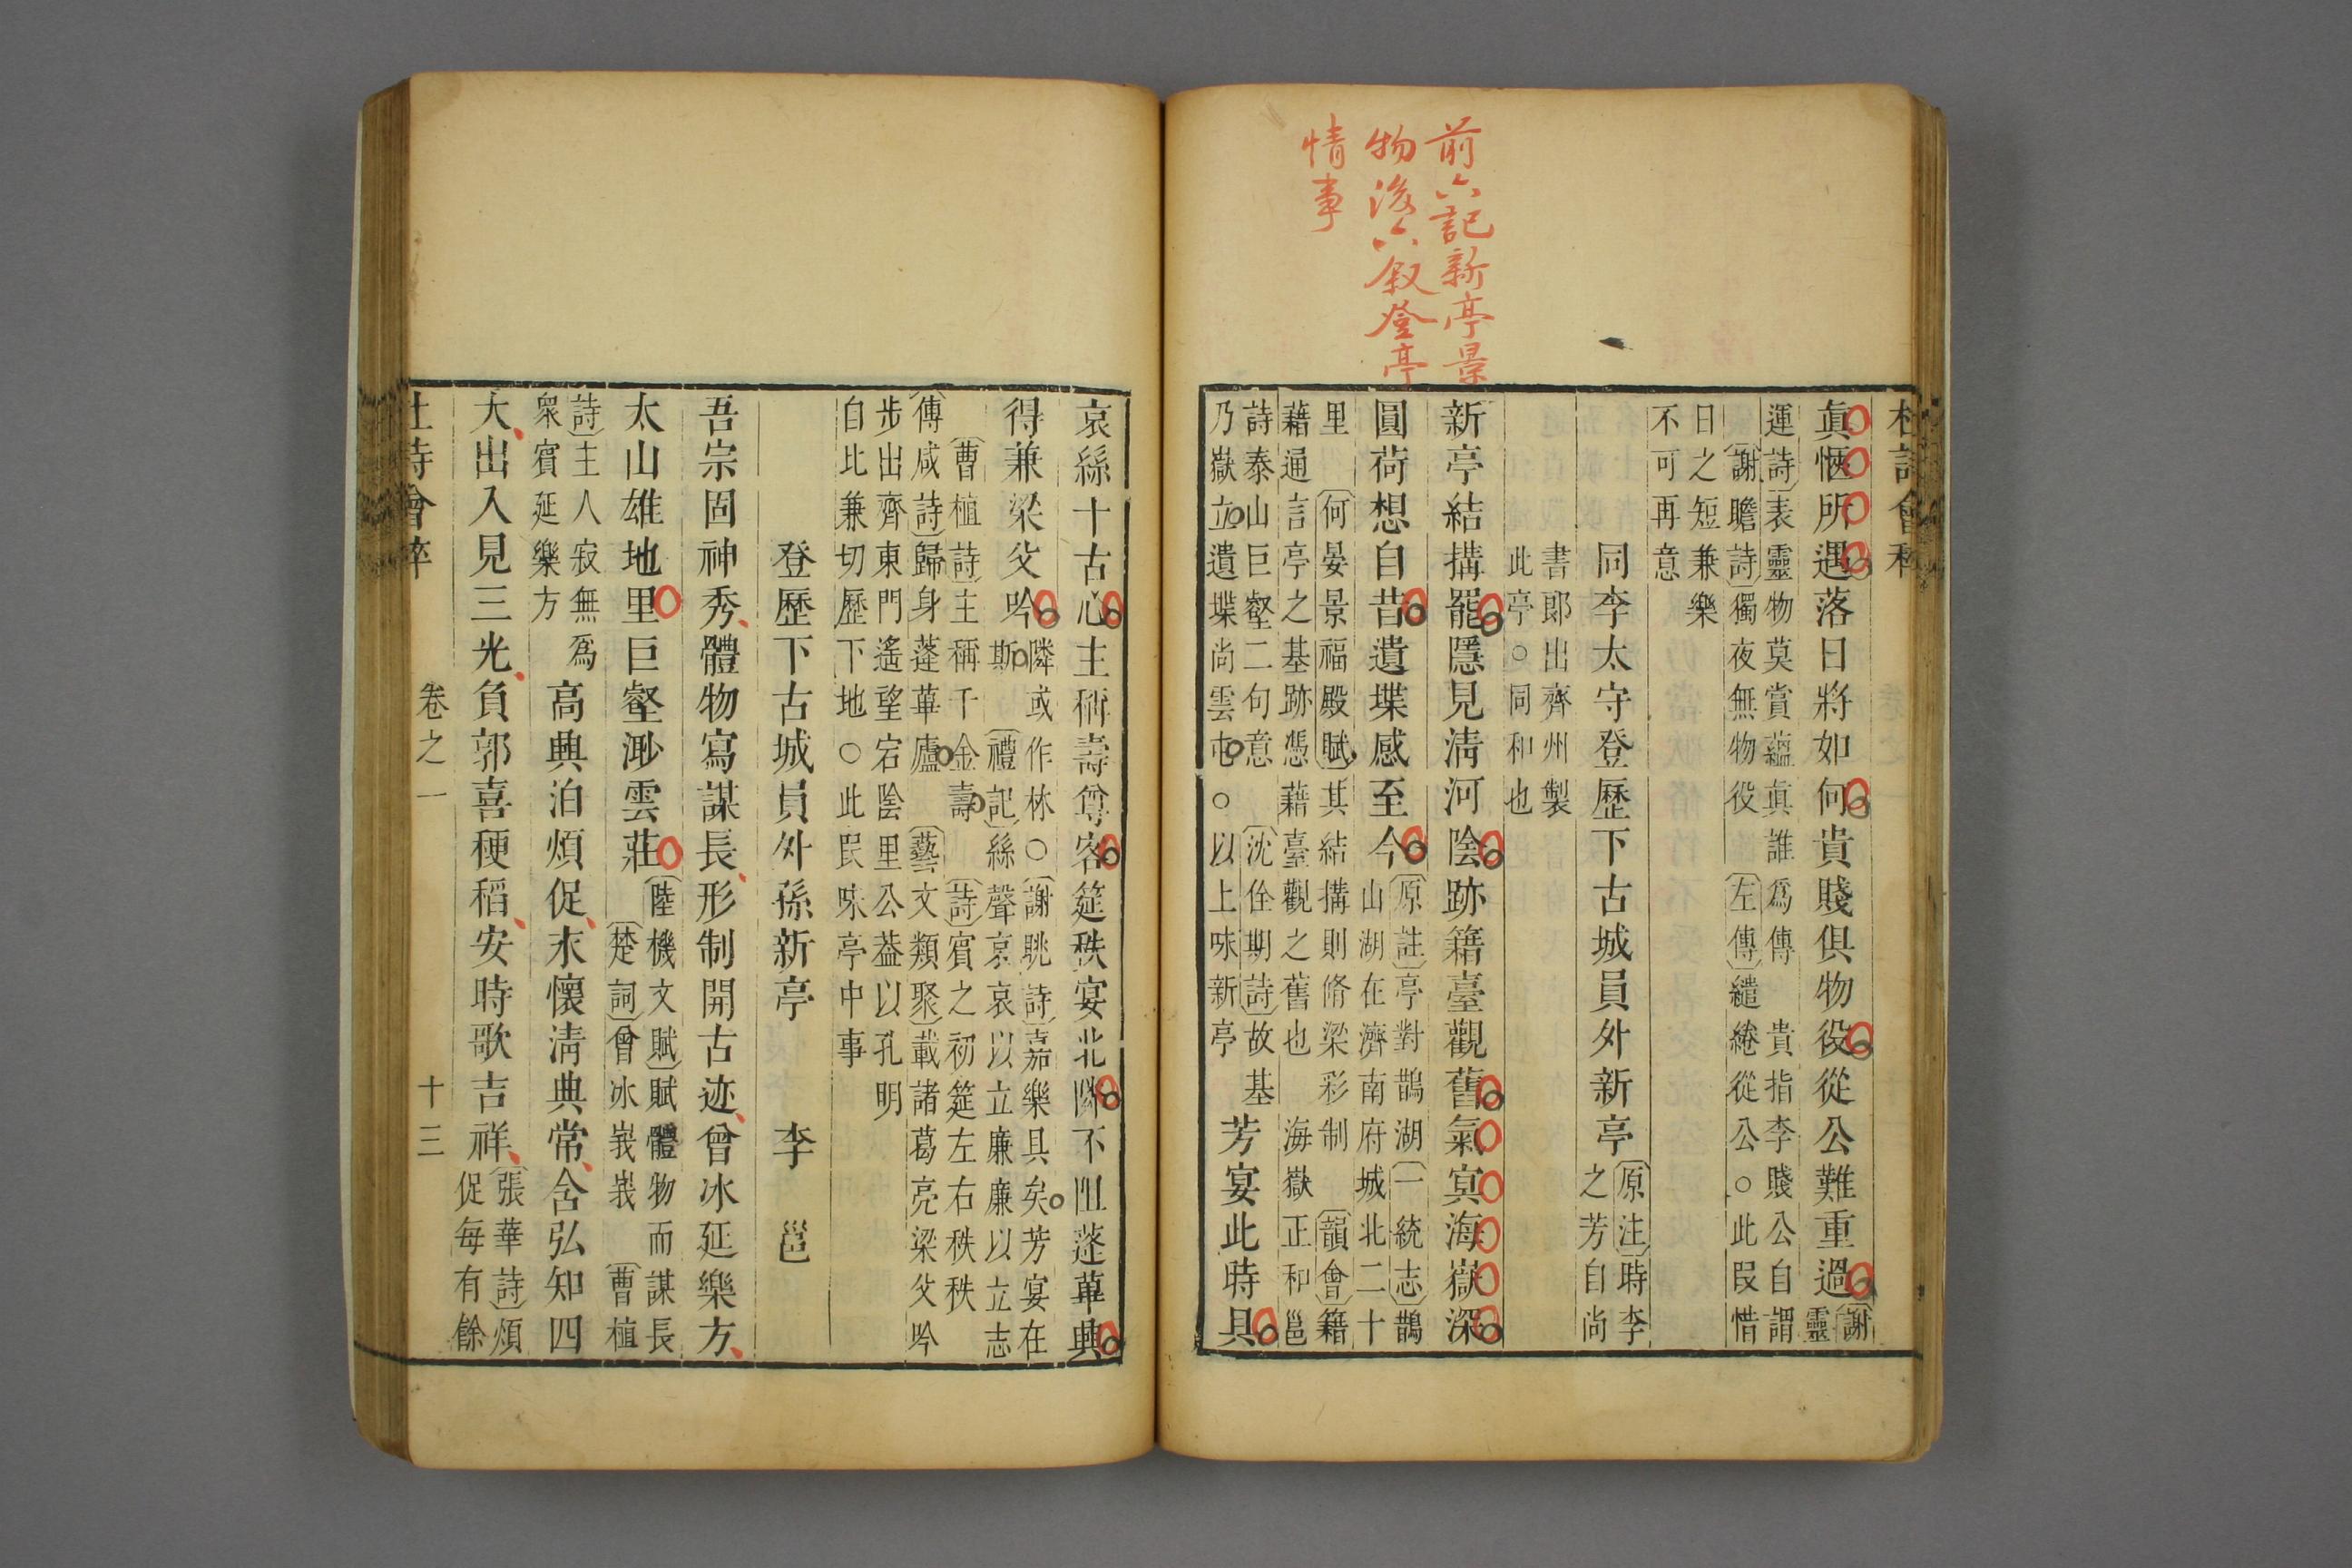 前六記新亭景
物後六叙登亭
情事
杜詩會稡
眞愜所遇落日將如何貴賤俱物役從公難重過〔謝靈
運詩〕表靈物莫賞蘊眞誰爲傳　貴指李賤公自謂
〔謝瞻詩〕獨夜無物役　〔左傳〕繾綣從公○此叚惜
日之短兼樂
不可再意
同李太守登歷下古城員外新亭〔原注〕時李
之芳自尚
書郎出齊州製
此亭○同和也
新亭結搆罷隱見淸河陰跡籍臺觀舊氣冥海嶽深
圓荷想自昔遺堞感至今〔原註〕亭對鵲湖〔一統志〕鵲
山湖在濟南府城北二十
里　〔何晏景福殿賦〕其結搆則脩梁彩制　〔韻會〕籍
藉通言亭之基跡憑藉臺觀之舊也　海嶽正和邕
詩泰山巨壑二句意　〔沈佺期詩〕故基
乃嶽立遺堞尚雲屯○以上味新亭
芳宴此時具
哀絲十古心主稱壽尊客筵秩宴北隣不阻蓬蓽興
得兼梁父吟隣或作林○〔謝眺詩〕嘉樂具矣芳宴在
斯　〔禮記〕絲聲哀哀以立廉廉以立志
〔曹植詩〕主稱千金壽　〔詩〕賓之初筵左右秩秩
〔傅咸詩〕歸身蓬蓽廬　〔藝文類聚〕載諸葛亮梁父吟
步出齊東門遙望宕陰里公葢以孔明
自比兼切歷下地○此叚味亭中事
登歷下古城員外孫新亭　李　邕
吾宗固神秀體物寫謀長形制開古迹曾冰延樂方
太山雄地里巨壑渺雲莊〔陸機文賦〕賦體物而謀長
〔楚詞〕曾冰峩峩　〔曹植
詩〕主人寂無爲
衆賓延樂方
高興泊煩促永懷淸典常含弘知四
大出入見三光負郭喜稉稻安時歌吉祥〔張華詩〕煩
促每有餘
杜詩會稡　卷之一　十三